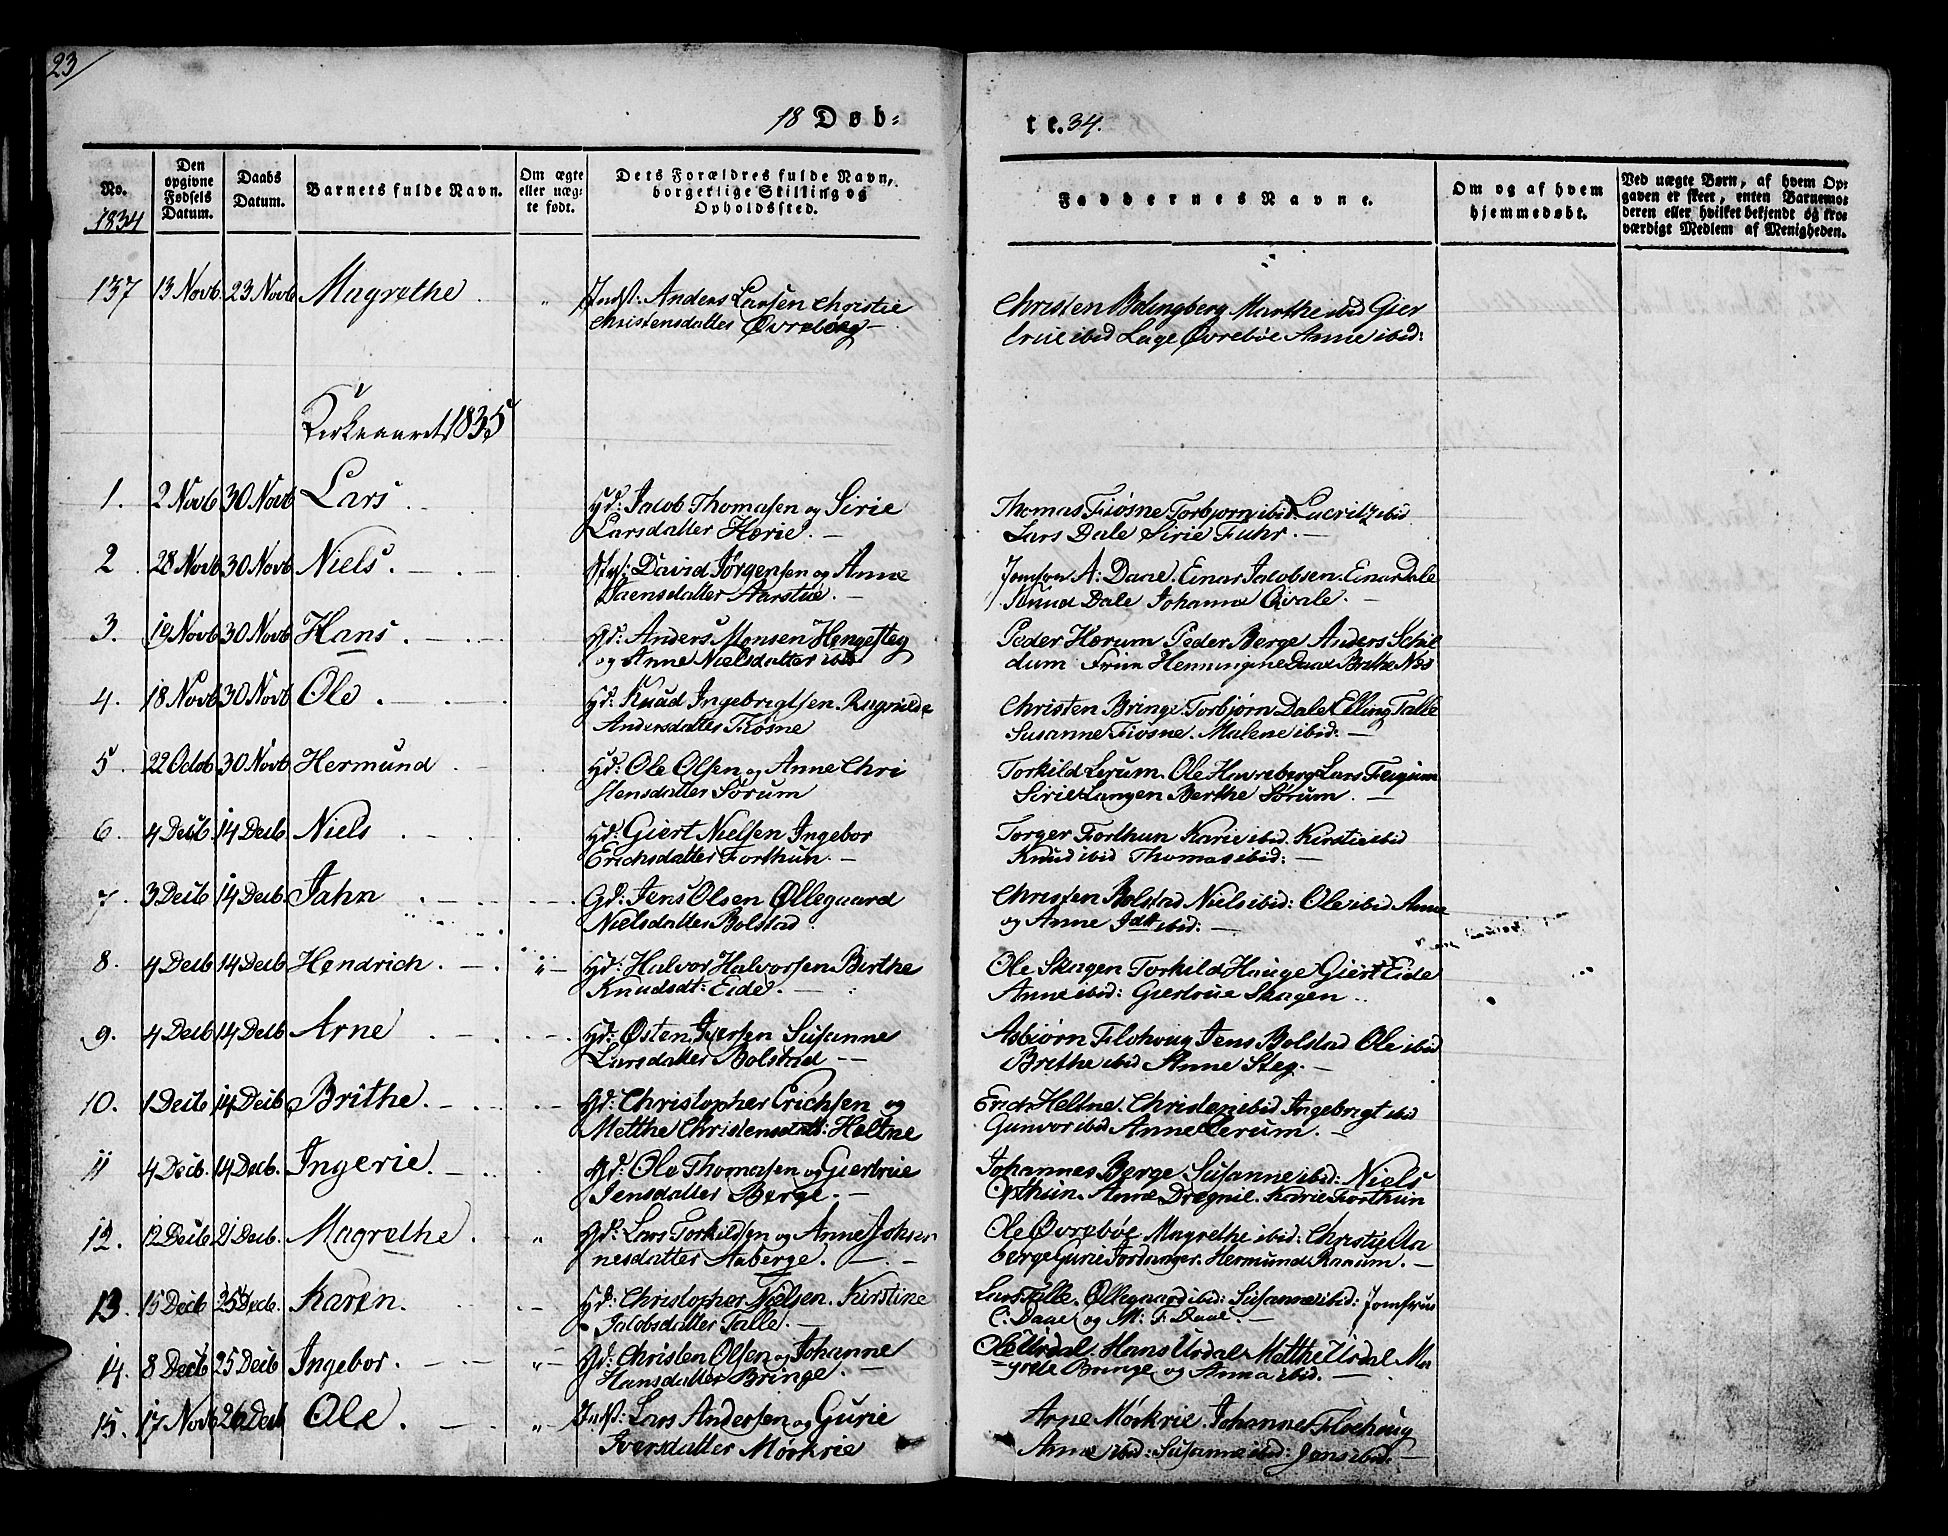 23
18 Døb-
te. 34.
No.
1834
Den
opgivne
Fødsels
Datum.
Daabs
Datum.
Barnets fulde Navn.
Om ægte
eller uæg-
te født.
Dets Forældres fulde Navn,
borgerlige Stilling og
Opholdssted.
Faddernes Navne.
Om og af hvem
hjemmedøbt.
Ved uægte Børn, af hvem Op-
gaven er skeet, enten Barnemo-
deren eller hvilket bekjendt og tro-
værdigt Medlem af Menigheden.
137 13 Novb 23 Novb Magrethe. " Indst: Anders Larsen Christie
Christensdatter Øvrebøeg
Christen Marthe ibid Gier
true ibid Lage Øvrebøe Anne ibid:
Kirkeaaret 1835
1. 2 Novb 30 Novb Lars. Gd: Jacob Thomasen og Sirie
Larsdatter Hærie.
Thomas Fiøsne Torbjørn ibid: Lucritz ibid
Lars Dale Sirie Fuhr.
2 28 Novb 30 Novb Niels. David Jørgensen og Anne
Daensdatter Aarstue.
A: Daae. Einar Jacobsen. Einar Dale
Knud Dale Johanne Qvale.
3. 19 Novb 30 Novb Hans. Gd: Anders Monsen Hengesteg
og Anne Nielsdatter ibid
Peder Hærum Peder Berge Anders Schil
dum Henningine Daae Brithe Næs
4. 18 Novb 30 Novb Ole. Gd: Knud Ingebrigtsen. Ragnilde
Andersdatter Fiøsne
Christen Bringe Torbjørn Dale Elling Talle
Susanne Fiøsne. Malene ibid.
5. 22 Octob 30 Novb Hermund Gd: Ole Olsen og Anne Chri
stensdatter Sørum
Torkild Lerum. Ole Havreberg Lars Feigum
Sirie Langen Berthe Sørum.
6. 4 Decb 14 Decb Niels Gd: Giert Nielsen Ingebor
Erichsdatter Forthun.
Torger Forthun Karie ibid. Kirstie ibid
Knud ibid Thomas ibid:
7. 3 Decb 14 Decb. Jahn Gd: Jens Olsen Øllegaard
Nielsdatter Bolstad.
Christen Bolstad Niels ibid: Ole ibid Anne
og Anne Jdtt ibid:
8. 4 Decb 14 Decb Hendrich. " Gd: Halvor Halvorsen Birthe
Knudsdt: Eide.
Ole Skagen Torkild Hauge Giert Eide
Anne ibid: Giertrue Skagen
9. 4 Decb 14 Decb Arne Gd: Østen Iversen Susanne
Larsdatter Bolstad
Asbiørn Flohoug Jens Bolstad Ole ibid
Brithe ibid Anne Steg.
10. 1 Decb 14 Decb Brithe. Gd: Christopher Erichsen og
Metthe Christensdatt: Heltne
Erich Heltne. Christen ibid Ingebrigt ibid
Gunvor ibid Anne Lerum.
11 4 Decb. 14 Decb. Ingerie. Gd: Ole Thomasen og Giertrue
Jensdatter Berge.
Johannes Berge. Susanne ibid: Niels
Opthun. Anne Drægnie. Karie Forthun
12. 12 Decb 21 Decb. Magrethe. " Gd: Lars Torkildsen og Anne Johan
nesdatter Aaberge.
Ole Øvrebøe Magrethe ibid: Christie Aa
berge Gurie Jordanger. Hermund Raaum.
13. 15 Decb 25 Decb. Karen. Gd: Christopher Nielsen. Kirstine
Jacobsdatter Talle.
Lars Talle. Øllegaard ibid: Susanne ibid: Jomfrue
C: Daae og M: F: Daae.
14. 8 Decb 25 Decb Ingebor. " Gd: Christen Olsen og Johanne
Hansdatter Bringe.
Ole Urdal. Hans Urdal. Metthe Urdal Ma
grete Bringe og Anna ibid.
15. 17 Novb 26 Decb Ole. " Indst: Lars Andersen og Gurie
Iversdatter Mørkrie
Arne Mørkrie. Johannes Flohoug
Anne ibid: Susanne ibid: Jens ibid: